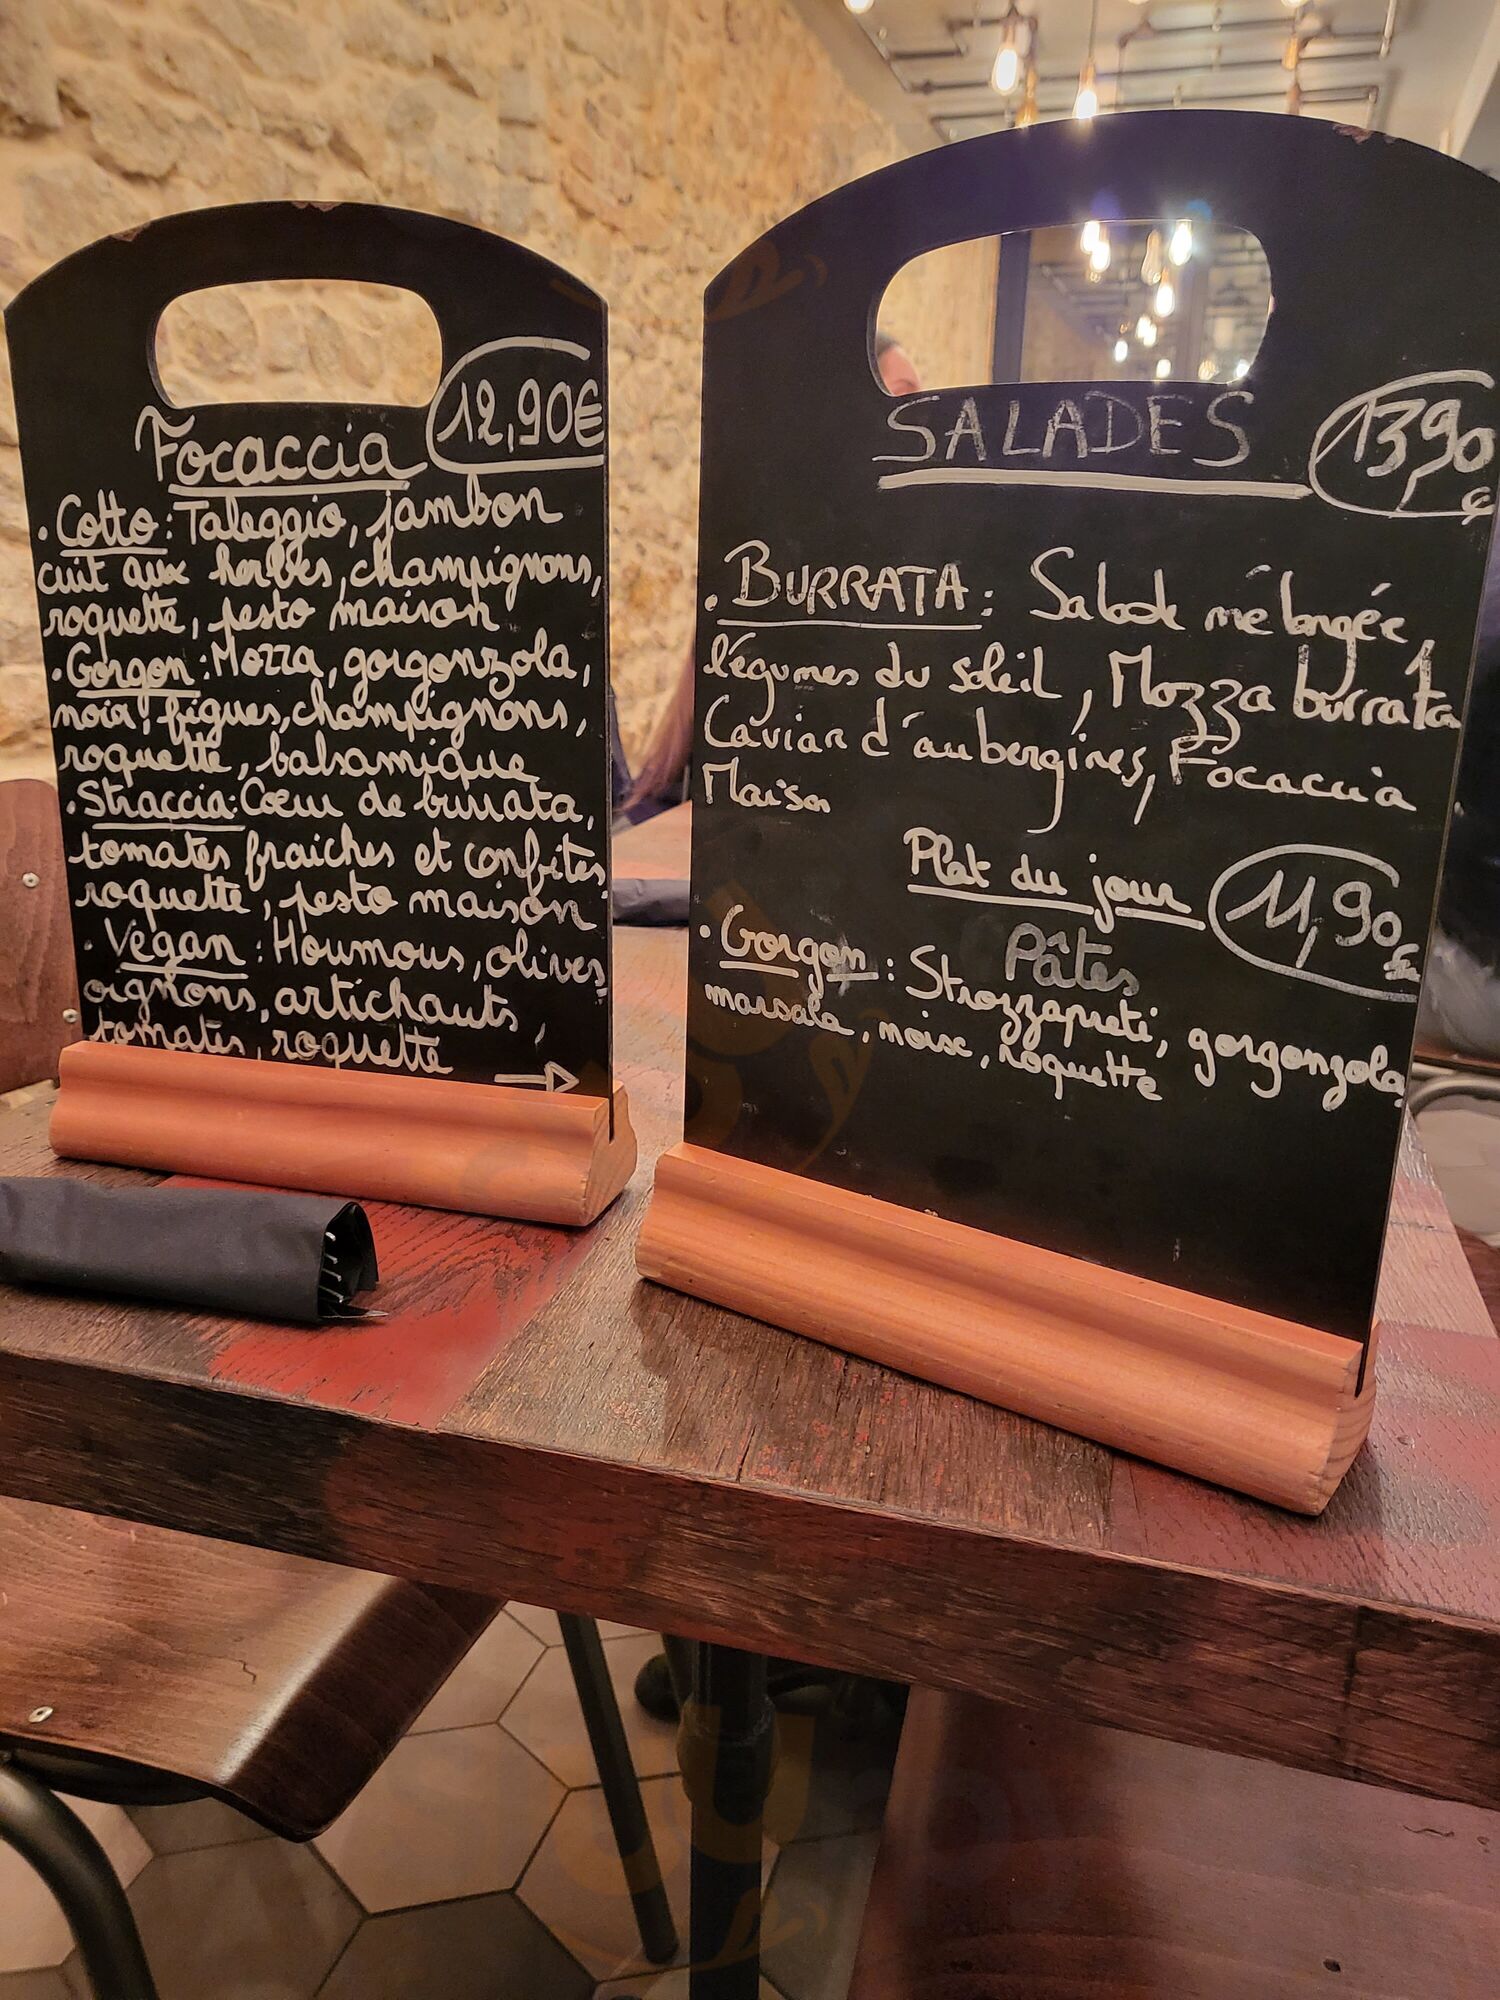 Focaccia 12,90€
• Cotto : Taleggio, jambon
cuit aux herbes, champignons,
roquette, pesto maison
• Gorgon : Mozza, gorgonzola,
noix, figues, champignons,
roquette, balsamique
• Straccia : Cœur de burrata,
tomates fraiches et confites,
roquette, pesto maison
• Vegan : Houmous, olives,
oignons, artichauts,
tomates, roquette
→
SALADES 13,90 €
• BURRATA : Salade mélangée,
légumes du soleil, Mozza burrata,
Caviar d'aubergines, Focaccia
Maison
Plat du jour 11,90€
Pâtes
• Gorgon : Strozzapreti, gorgonzola,
marsala, noisc, roquette